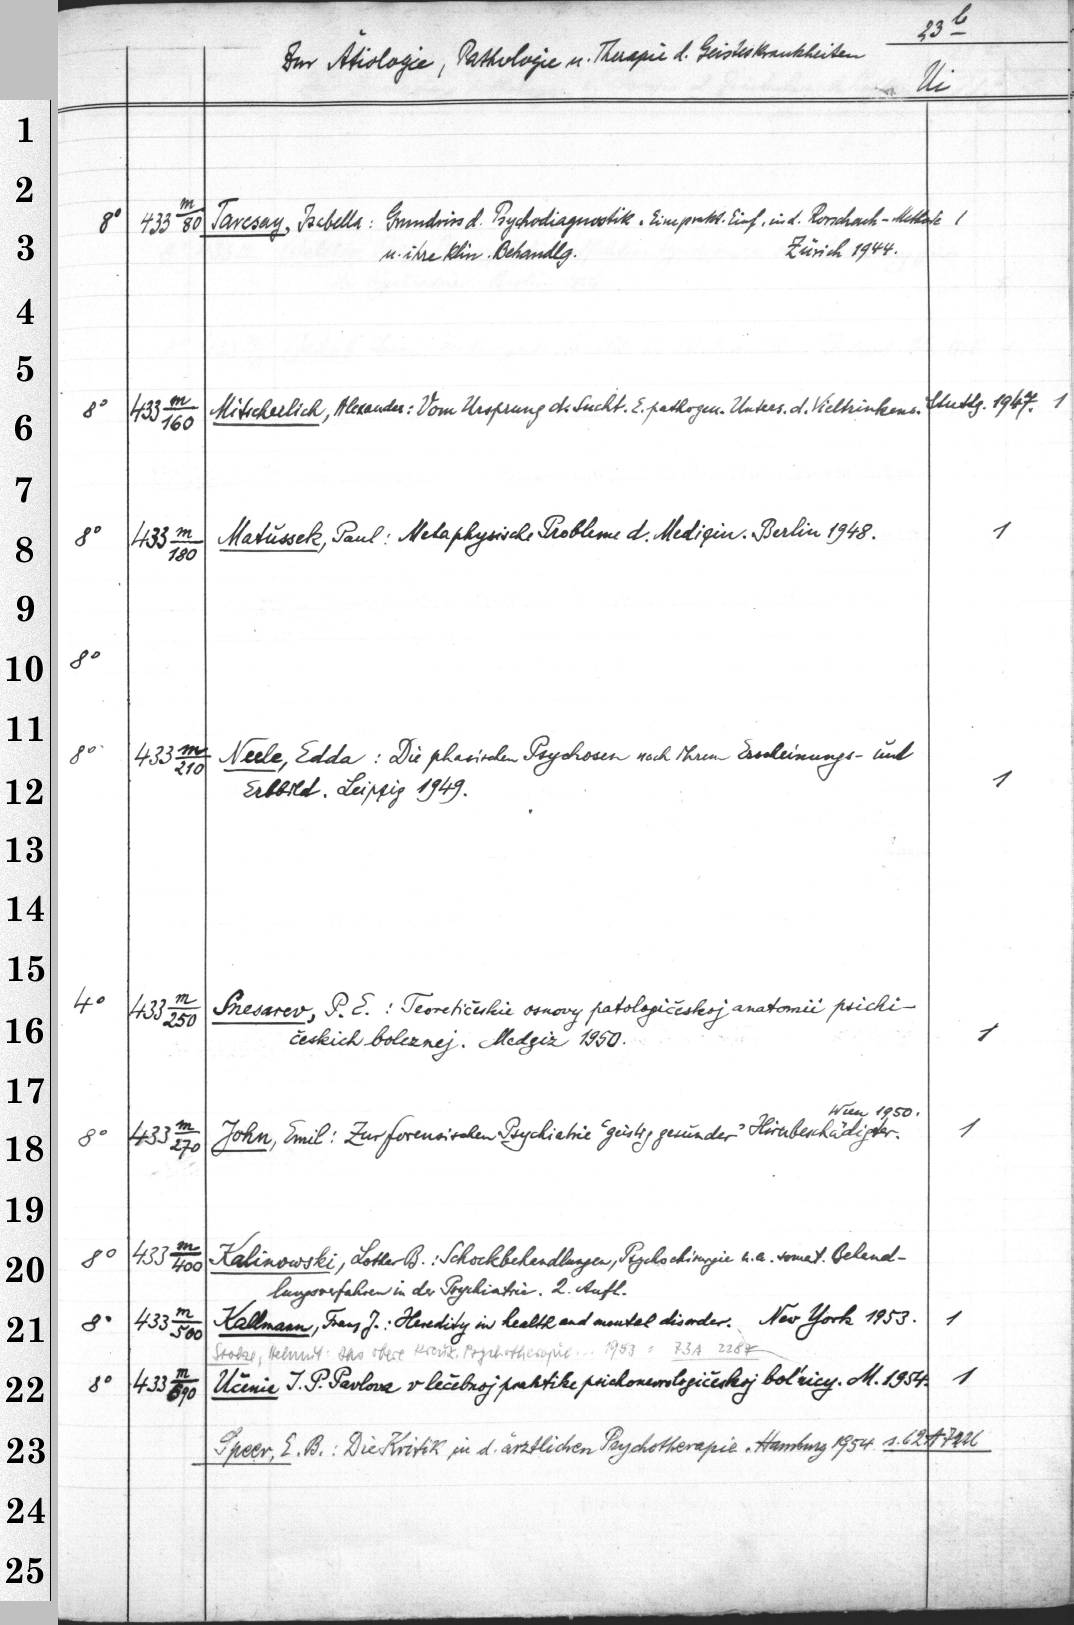 23 b
Zur Ätiologie, Pathologie u. Therapie d. Geisteskrankheiten
Ui
1
2
8° 433 m/80 Tarcsay, Isabella: Grundriss d. Psychodiagnostik. Eine prakt. Einf. in d. Rorschach-Methode 1
3
u. ihre klin. Behandlg. Zürich 1944.
4
5
8° 433 m/160 Mitscherlich, Alexander: Vom Ursprung d. Sucht. E. pathogen. Unters. d. Vieltrinkens. Stuttg. 1947. 1
6
7
8° 433 m/180 Matussek, Paul: Metaphysische Probleme d. Medizin. Berlin 1948. 1
8
9
8°
10
11
8° 433 m/210 Neele, Edda: Die phasischen Psychosen nach ihrem Erscheinungs- und
12
Erbbild. Leipzig 1949. 1
13
14
15
4° 433 m/250 Snesarev, P. E.: Teoretičeskie osnovy patologičeskoj anatomii psichi-
16
českich boleznej. Medgiz 1950. 1
17
Wien 1950.
8° 433 m/270 John, Emil: Zur forensischen Psychiatrie "geistig gesunder" Hirnbeschädigter. 1
18
19
8° 433 m/400 Kalinowski, Lothar B.: Schockbehandlungen, Psychochirurgie u. a. somat. Behand-
20
lungsverfahren in der Psychiatrie. 2. Aufl.
8° 433 m/500 Kallmann, Franz J.: Heredity in health and mental disorder. New York 1953. 1
21
Helmut: Psychotherapie 1953 73A 2287
8° 433 m/590 Učenie I. P. Pavlova v lečebnoj praktike psichonevrologičeskoj bol'nicy. M. 1954. 1
22
Speer, E. B.: Die Kritik in d. ärztlichen Psychotherapie. Hamburg 1954 s. 62A
23
24
25